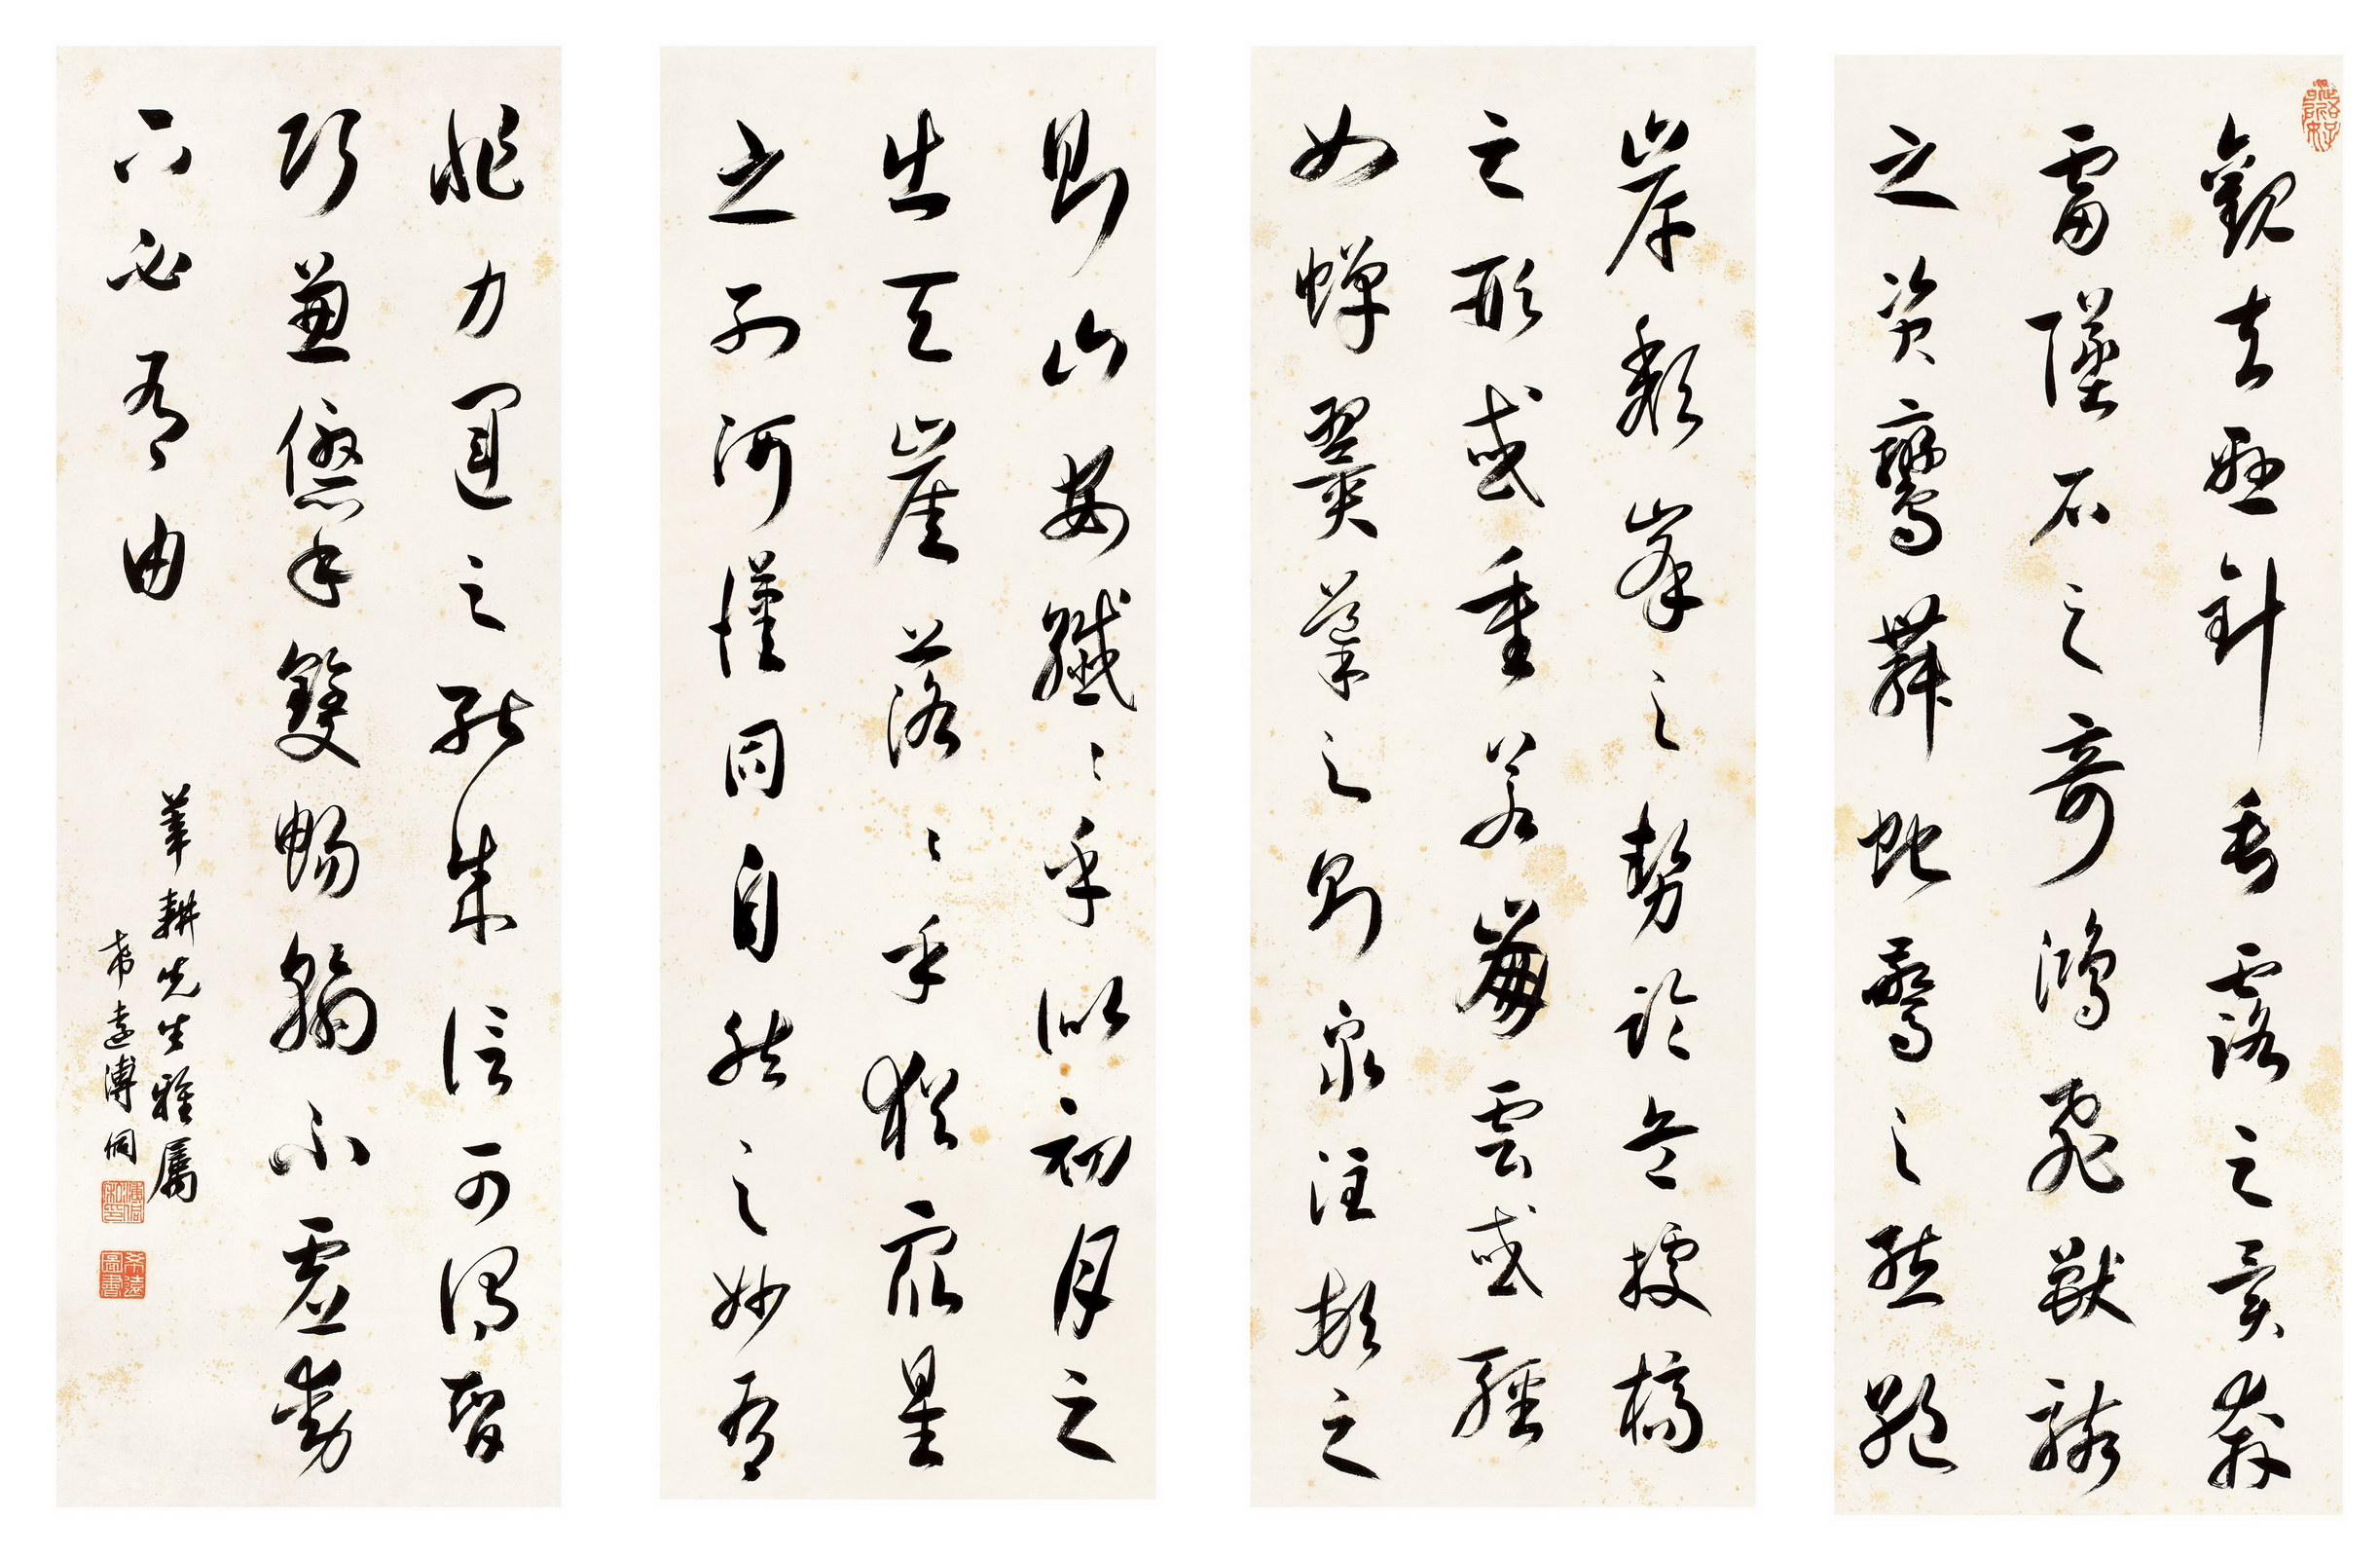 觀夫懸針垂露之異奔
雷墜石之奇鴻飛獸駭
之資鸞舞蛇驚之態絕
岸頹峯之勢臨危據槁
之形或重若崩雲或輕
如蟬翼導之則泉注頓之
則山安纖〻乎似初月之
出天崖落〻乎猶眾星
之列河漢同自然之妙有
非力運之能成信可謂智
巧兼優心手雙暢翰不虛動
下必有由
華耕先生雅屬
希遠溥侗
希遠圖書